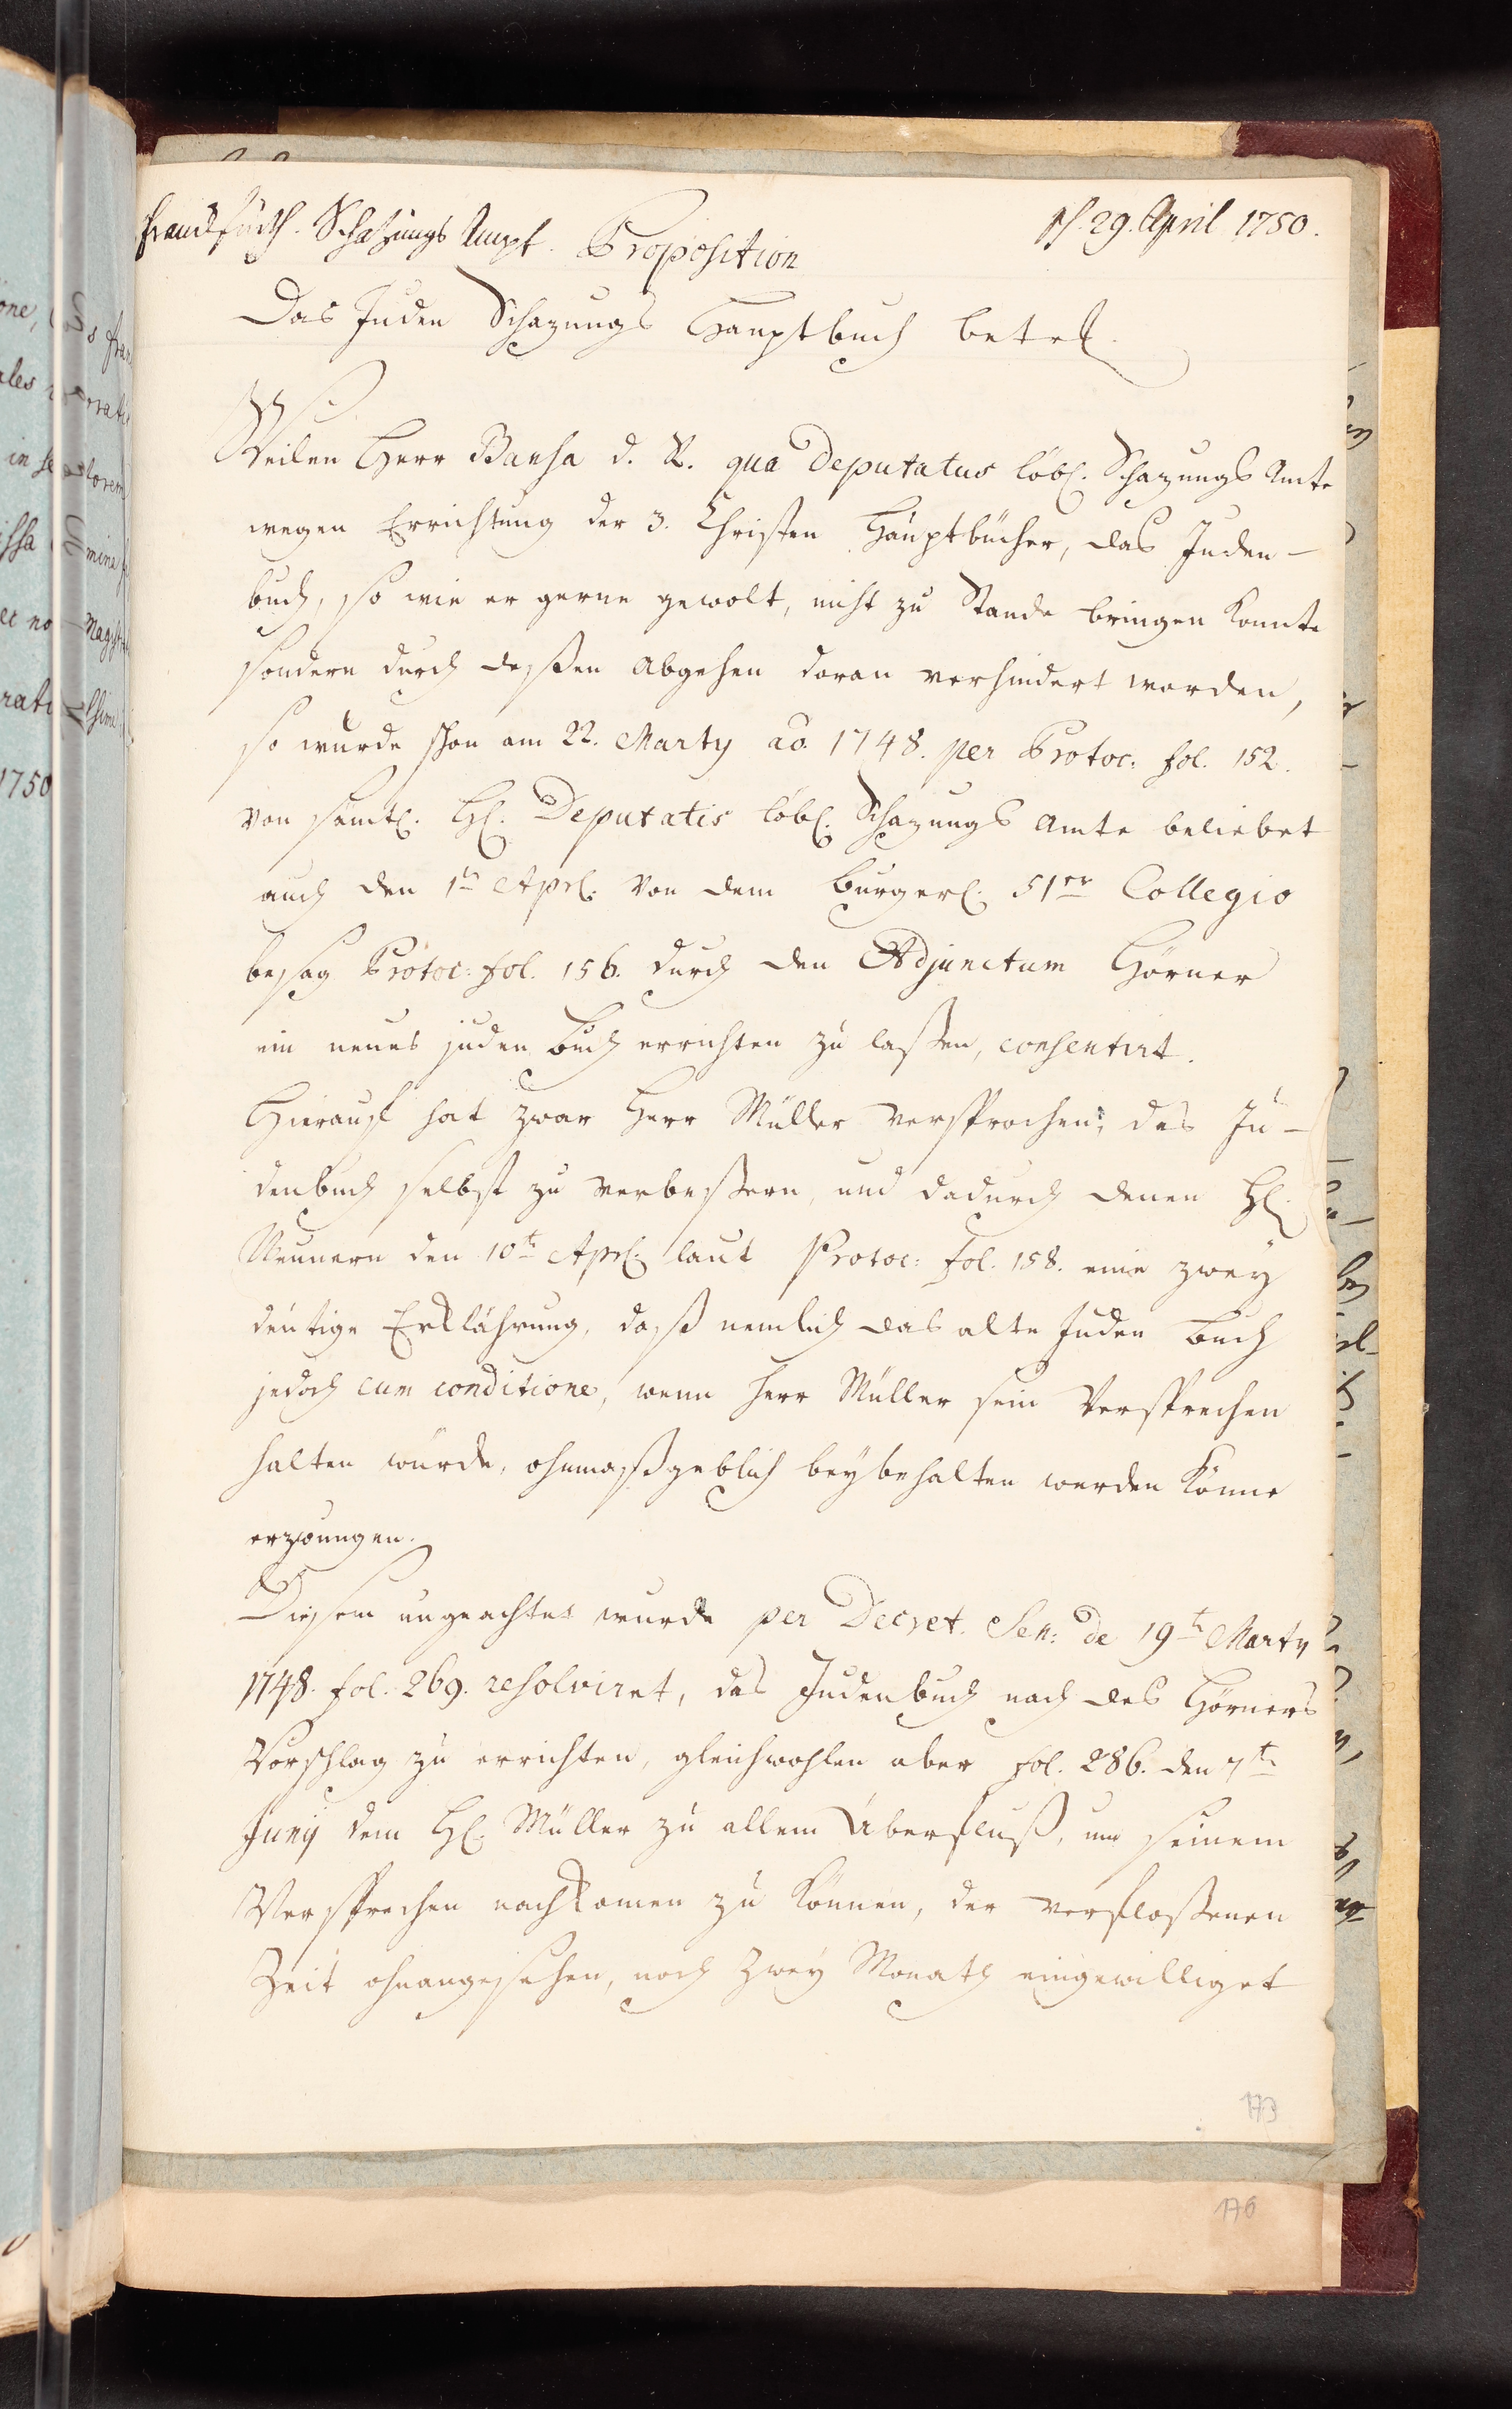 Franckfurth. Schatzungs Ampt. Proposition
ps. 29. April 1750.
Das Juden Schazungs Hauptbuch betrl.
Weilen Herr Bansa d. R. qua Deputatus löbl. Schazungs Amte
wegen Errichtung der 3. Christen Hauptbücher, das Juden-
buch, so wie er gerne gewolt, nicht zu Stande bringen konnte
sondern durch deßen Abgehen daran verhindert worden,
so wurde schon am 22. Marty ao. 1748. per Protoc: fol. 152.
von sämtl. Hl. Deputatis löbl. Schazungs Amte beliebet
auch den 1tn Aprl. von dem Burgerl. 51er Collegio
besag Protoc: fol. 156. durch den Adjunctum Hörner
ein neues juden Buch errichten zu laßen, consentirt.
Hierauf hat zwar Herr Müller versprochen, das Ju-
denbuch selbst zu verbeßern, und dadurch denen Hl.
Neunern den 10t Aprl. laut Protoc: fol. 158. eine zwey
deutige Erklährung, daß nemlich das alte Juden Buch
jedoch cum conditione, wenn Herr Müller sein Versprechen
halten würde, ohnmaßgeblich beybehalten werden könne
erzwungen.
Diesem ungeachtet wurde per Decret. Sen: de 19t Marty
1748. fol. 269. resolviret, das Judenbuch nach des Hörners
Vorschlag zu errichten, gleichwohlen aber fol. 286. den 7t
Juny dem Hl. Müller zu allem Überfluß, um seinem
Versprechen nachkomen zu können, der verfloßenen
Zeit ohnangesehen, noch zwey Monath eingewilliget
173
176
1750